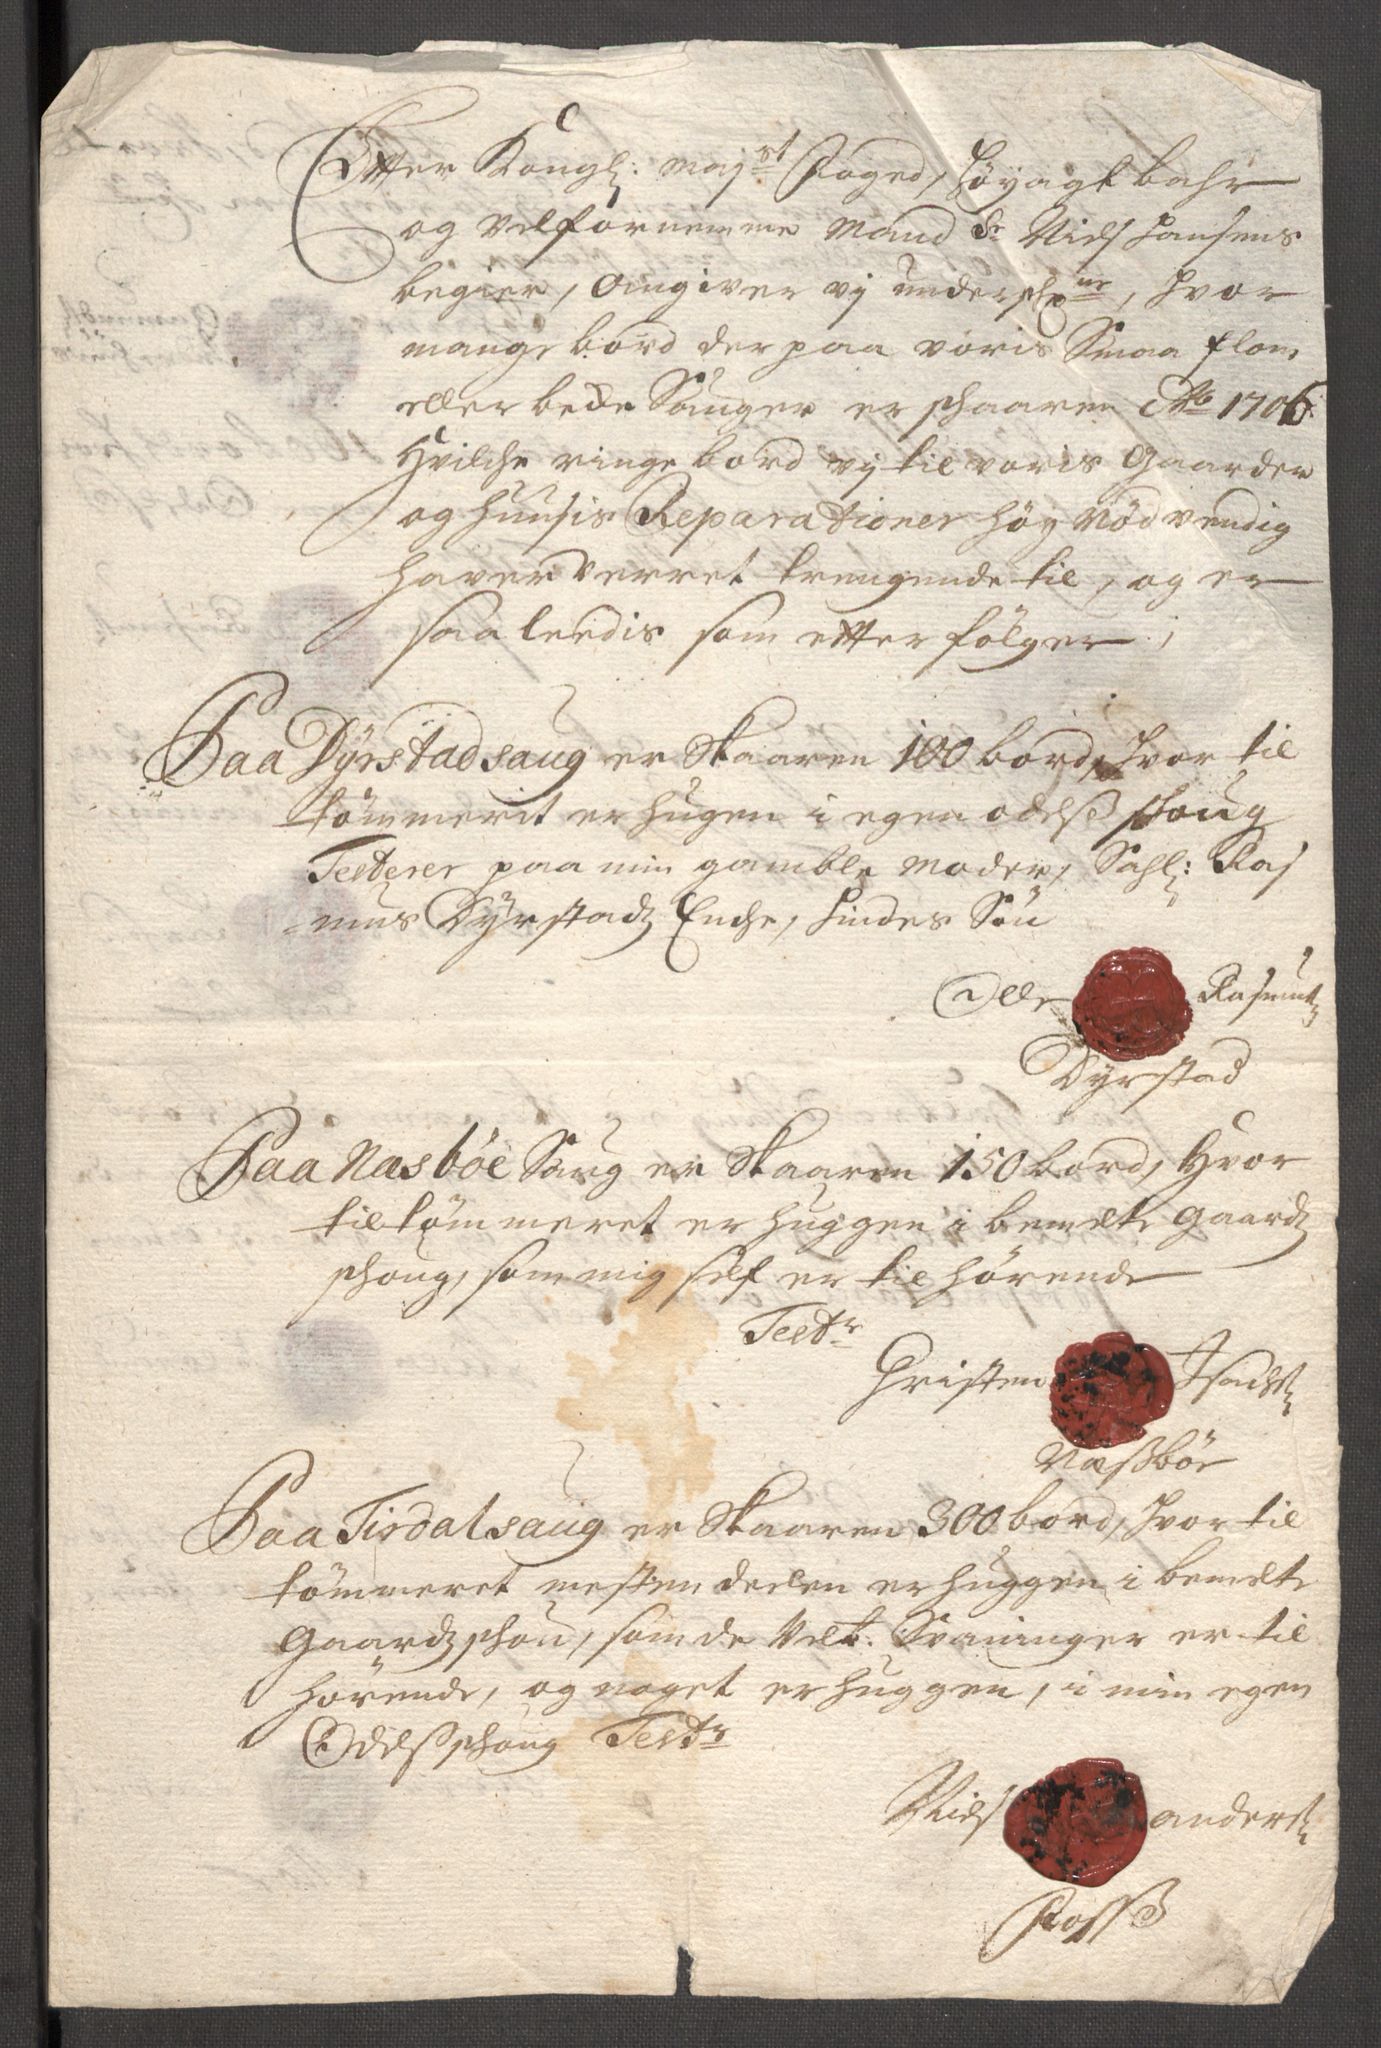 Etter Kongl: Maj:st Foged, Høyagtbahr
og velfornemme Mand Sr Niels Hansens
begier, Angiver vj underschrne, Hvor
mange bord der paa voris Smaa flom
eller bede Sauger er schaaren Ao 1706
Hvilche ringe bord vj til voris Gaarder
og huusis Reparationer høy nødvendig
haver verret trengende til, og er
saaledis som etter følger
Paa Dyrstad saug er Skaaren 100 bord, Hvor til
tømmerit er hugen i egen odelß schoug
Testerer paa min gamble Moder, Sahl: Ras
=mus Dyrstadz Enche, Hindes Søn
Olle Rasmusz
Dyrstad
Paa Nasbøe Saug er Skaaren 150 bord, Hvor
til tømmeret er huggen i bemelte gaardz
schoug, som mig self er tilhørende
Testr
Christen Isachsz
Naßbøe
Paa Tisdal saug er Skaaren 300 bord, Hvor til
tømmeret mesten deelen er huggen i bemelte
Gaardz schou, som de Velb. Svaninger er til
hørende, og noget er huggen, i min egen
Odelß schoug Testr
Niels Andersz
Roßß